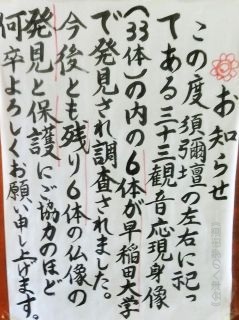 お知らせ
この度須彌壇の左右に祀っ
てある三十三観音応現身像
(33体)の内の6体が早稲田大学
で発見され調査されました。
今後とも残り6体の仏像の
発見と保護にご協力のほど
何卒よろしくお願い申し上げます。